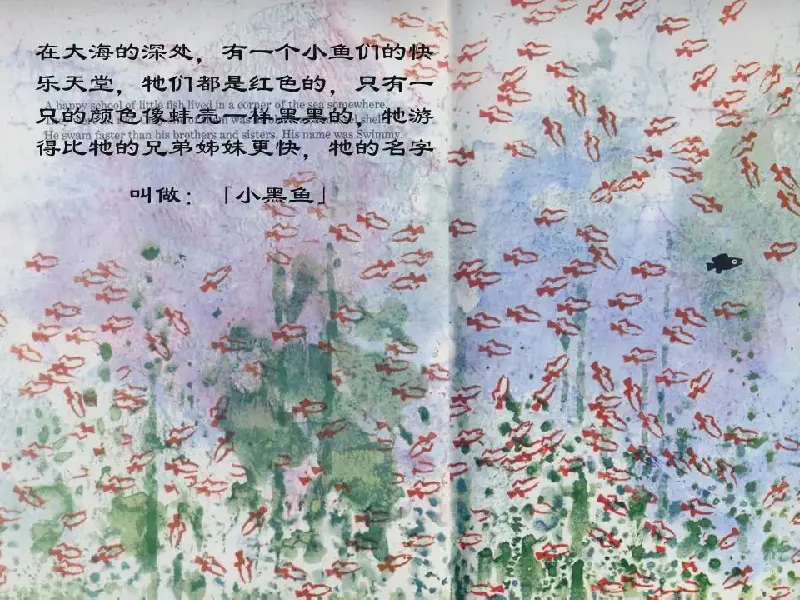 在大海的深处，有一个小鱼们的快
乐天堂，牠们都是红色的，只有一
A happy school of little fish lived in a corner of the sea somewhere.
只的颜色像蚌壳一样黑黑的，牠游
He swam faster than his brothers and sisters. His name was Swimmy.
得比牠的兄弟姊妹更快，牠的名字
叫做：「小黑鱼」